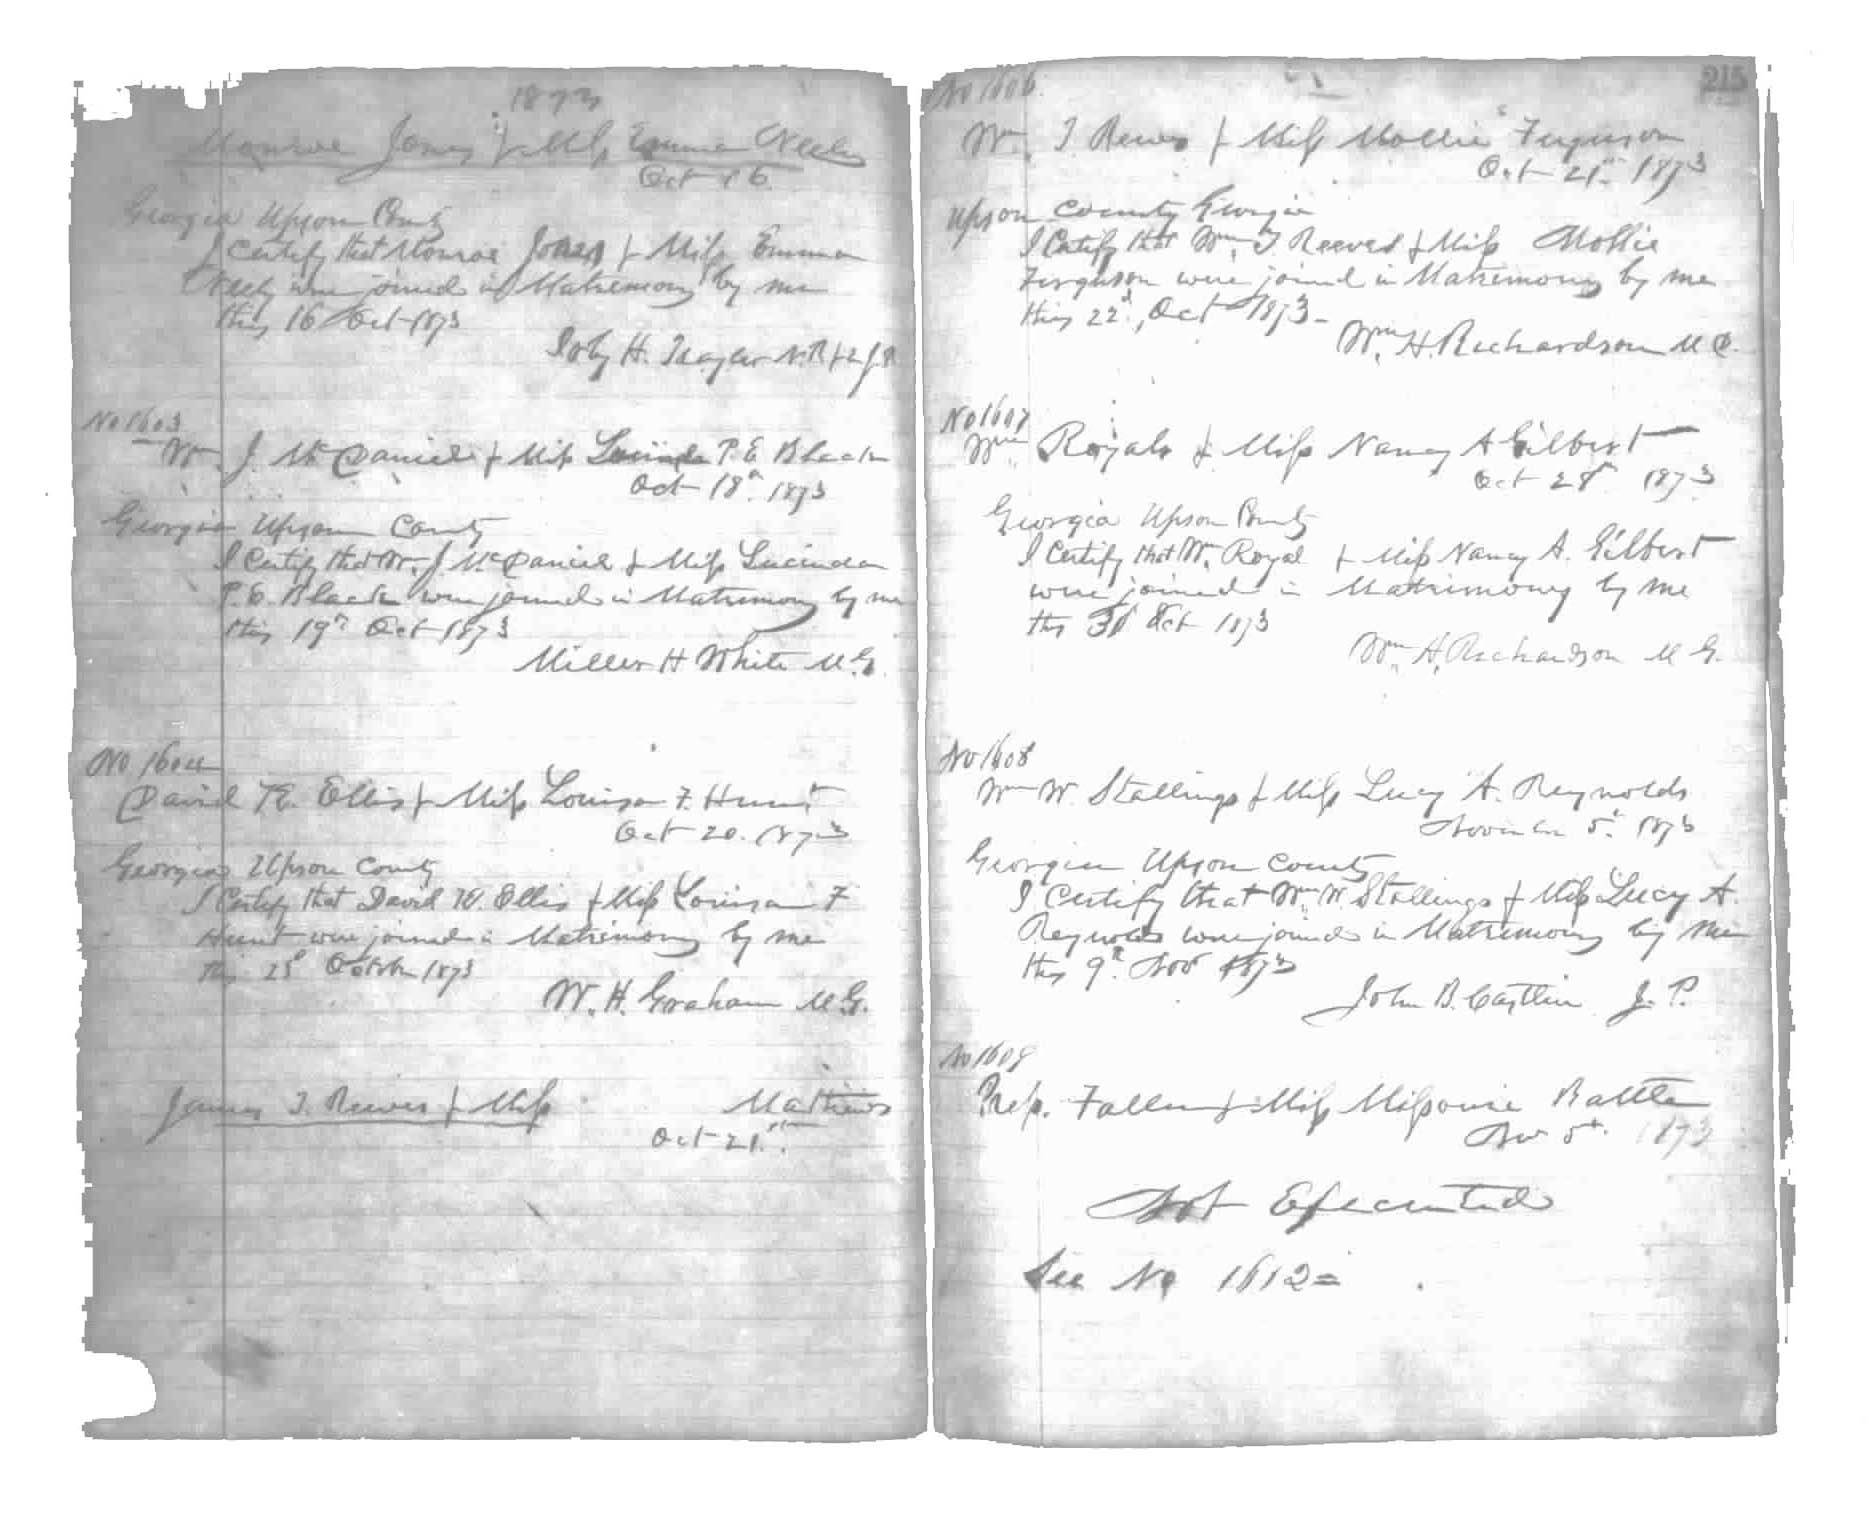 1873
Monroe Jones & Miss Emma Neely
Oct 16
Georgia Upson County
I certify that Monroe Jones & Miss Emma
Neely were joined in Matrimony by me
this 16 Oct 1873
H.
No 1603
Wm J. McDaniel & Miss Lucinda P. E. Black
Oct 18th 1873
Georgia Upson County
I Certify that Wm J. McDaniel & Miss Lucinda
P. E. Black were joined in Matrimony by me
this 19th Oct 1873
Miller H White M.G.
No 1604
David Ellis & Miss Louisa F. Hunt
Oct 20. 1873
Georgia Upson County
I Certify that David Ellis & Miss Louisa F
Hunt were joined in Matrimony by me
this 23d October 1873
W. H. Graham M.G.
James T. Reeves & Miss Mathews
Oct 21st
215
No 1606
Wm T Reeves & Miss Mollie Ferguson
Oct 21st 1873
Upson County Georgia
I Certify that Wm T Reeves & Miss Mollie
Ferguson were joined in Matrimony by me
this 22d, Oct 1873-
Wm H. Richardson M G.
No 1607
Wm Royals & Miss Nancy A Gilbert
Oct 28th 1873
Georgia Upson County
I Certify that Wm Royal & Miss Nancy A. Gilbert
were joined in Matrimony by me
this Oct 1873
Wm H. Richardson M G.
No 1608
Wm W. Stallings & Miss Lucy A. Reynolds
November 5th 1873
Georgia Upson County
I Certify that Wm W. Stallings & Miss Lucy A.
Reynolds were joined in Matrimony by me
this 9th Nov 1873
John B. Castlin J. P.
No 1609
& Miss Missourie Battle
Nov 5th 1873
Not Executed
See No 1612=